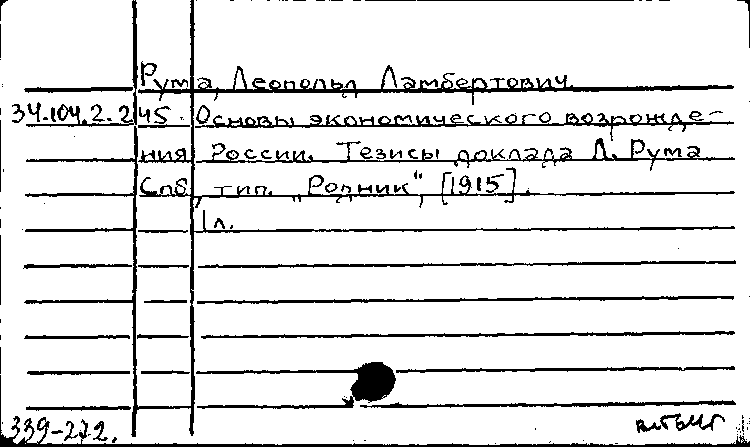 Рума, Леопольд Ламбертович.
34.104.2.245. Основы экономического возрожде-
ния России. Тезисы доклада Л. Рума
Спб, тип. „Родник“, [1915].
1л.
339-272.